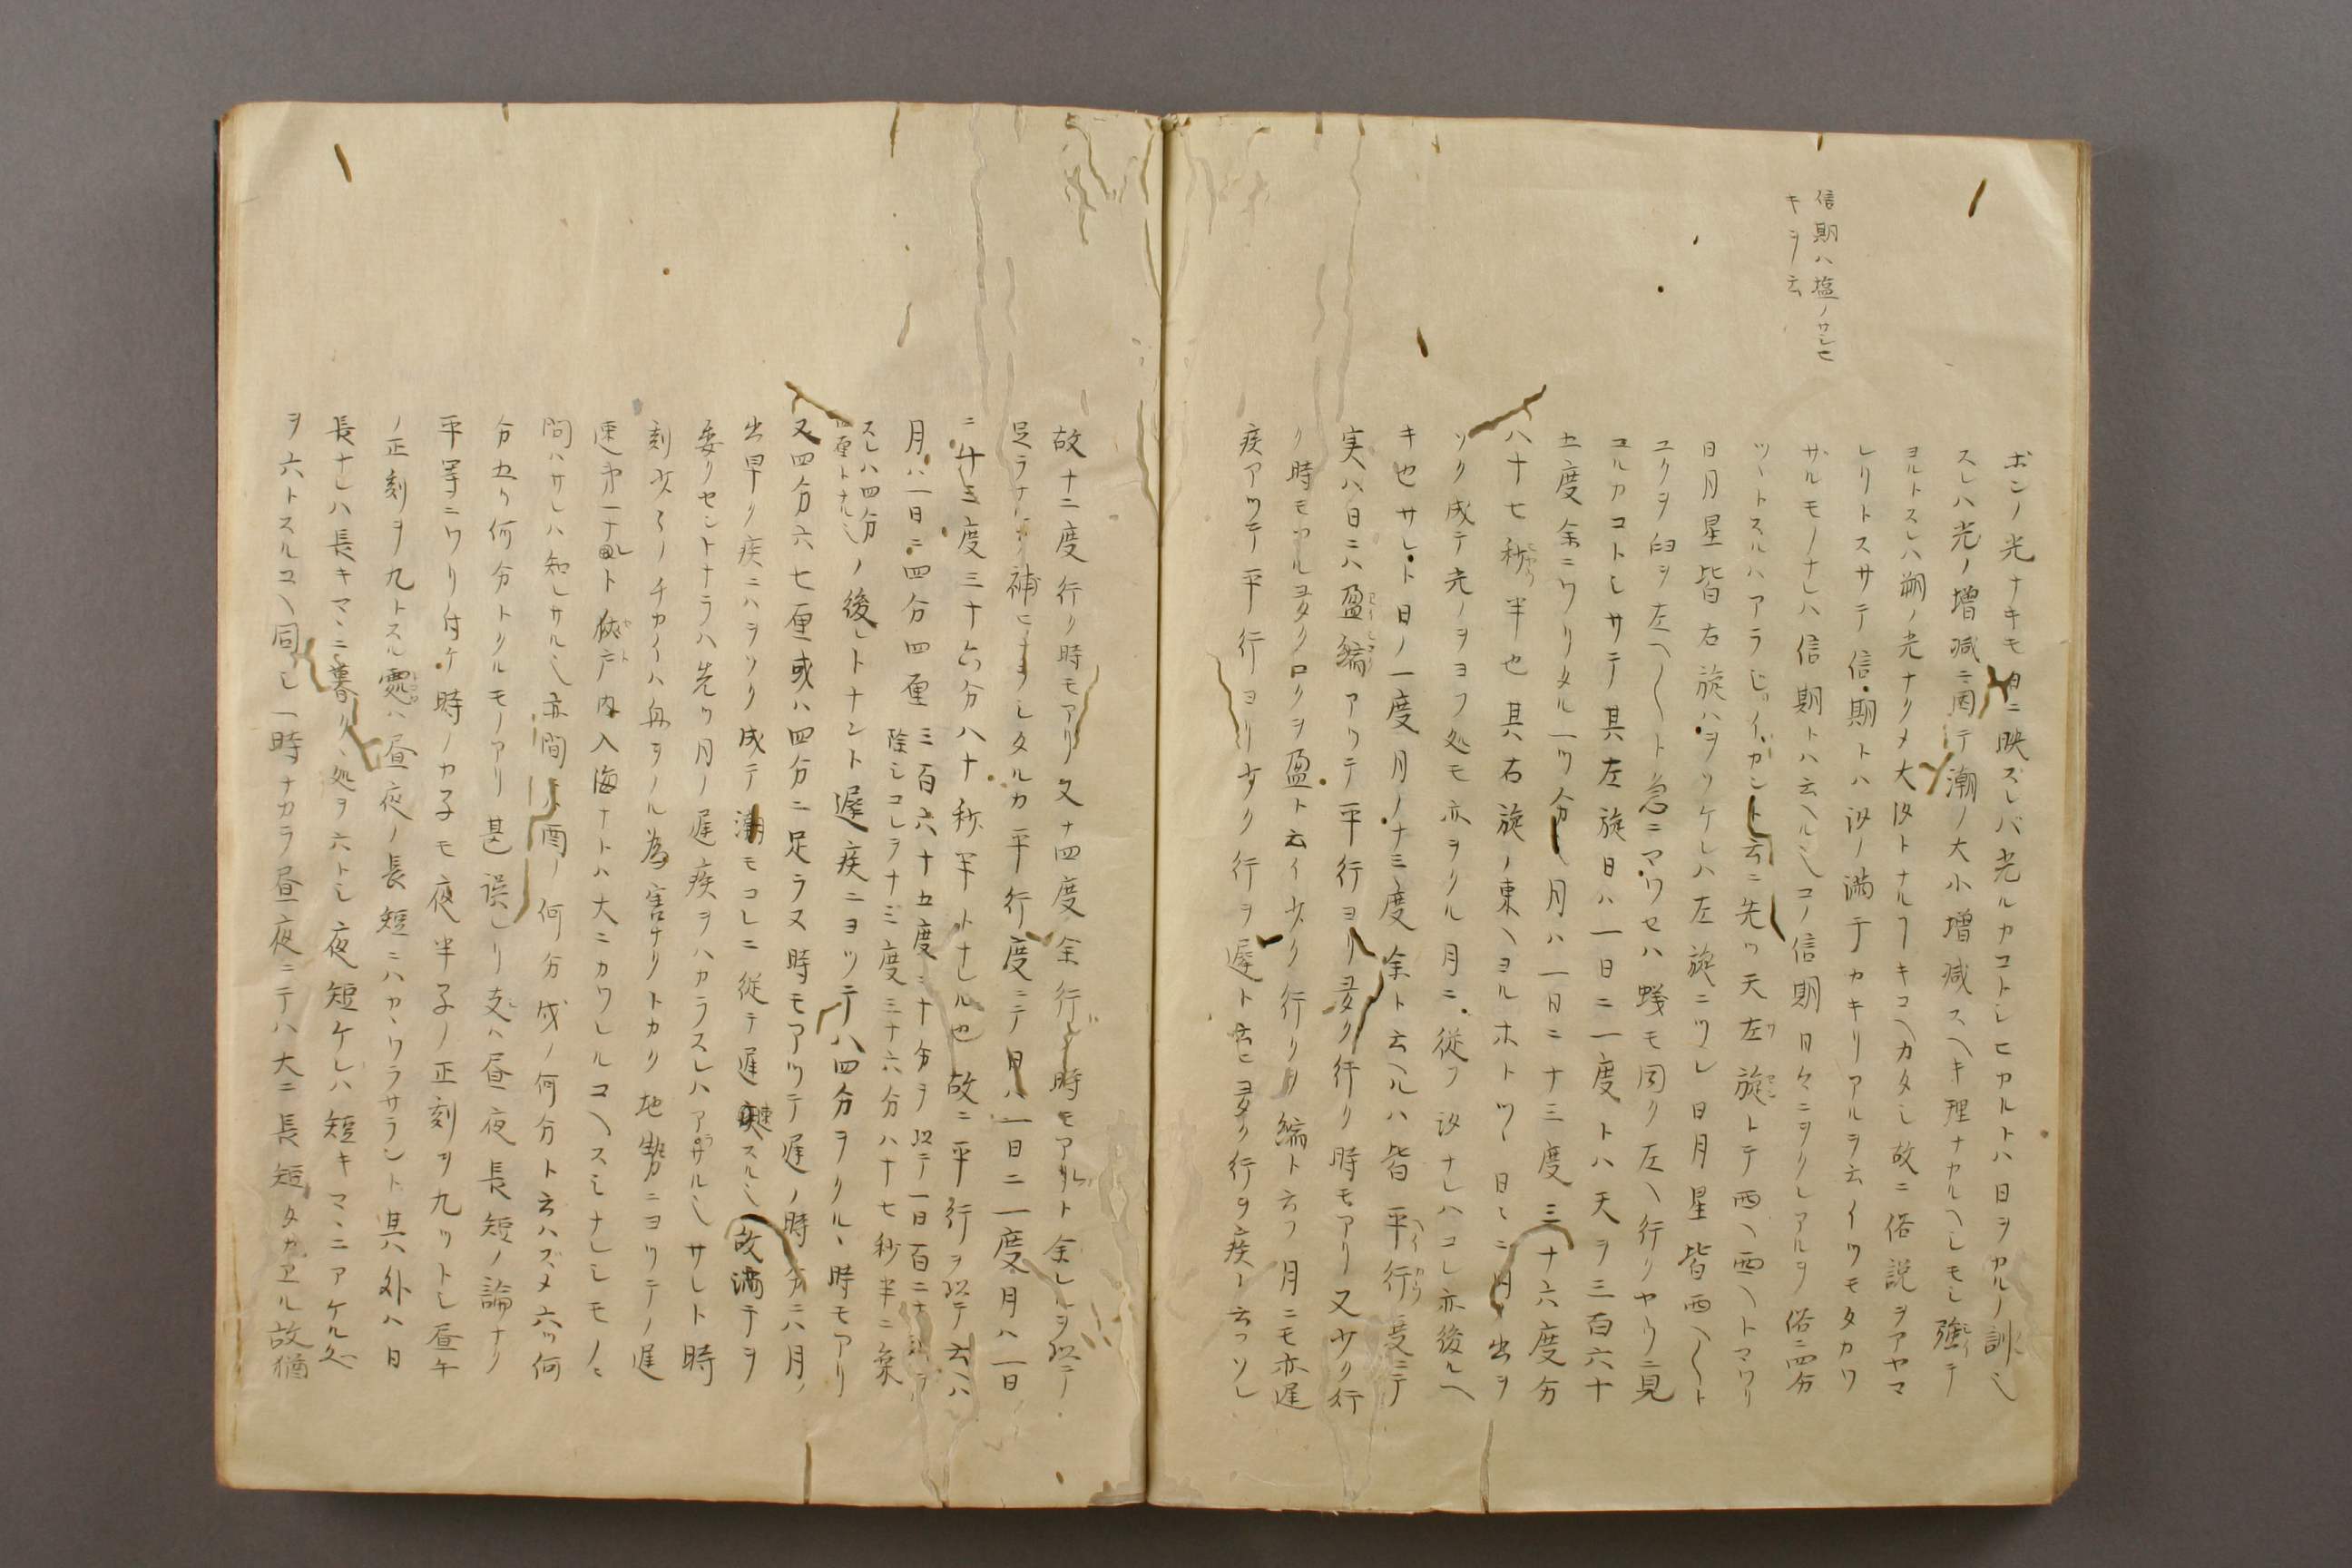 信期ハ塩ノサシヒ
キヲ云
ボンノ光ナキモ日ニ映ズレバ光ルカコトシヒカルトハ日ヲカルノ訓也
スレハ光ノ増減ニ因テ潮ノ大小増減スヘキ理ナカルヘシモシ強テ
ヨルトスレハ朔ノ光ナクメ大汐トナルヿキコヘカタシ故ニ俗説ヲアヤマ
レリトスサテ信期トハ汐ノ満干カキリアルヲ云イツモタカワ
サルモノナレハ信期トハ云ヘル也コノ信期日々ニヲクレアルヲ俗ニ四分
ツヽトスルハアラシ云ニ先ツ天左旋トテ西ヘ西ヘトマワリ
日月星皆右旋ハヲソケレハ左旋ニツレ日月星皆西ヘ〱ト
ユクヲ臼ヲ左ヘ〱ト急ニマワセハ蟻モ同ク左ヘ行クヤウニ見
ユルカコトシサテ其左旋日ハ一日ニ一度トハ天ヲ三百六十
五度余ニワリタル一ツ分也月ハ一日ニ十三度三十六度分
八十七秒半也其右旋ノ東ヘヨルホトツヽ日々ニ月ノ出ヲ
ソク成テ光ノヲヨフ処モ亦ヲクル月ニ従フ汐ナレハコレ亦後ルヘ
キ也サレト日ノ一度月ノ十三度余ト云ヘルハ皆平行度ニテ
実ハ日ニハ盈縮アツテ平行ヨリ多ク行ク時モアリ又少ク行
ク時モアル多クロクヲ盈ト云イ少ク行クヲ縮ト云フ月ニモ亦遅
疾アツテ平行ヨリ少ク行ヲ遅ト云ヒ多ク行ヲ疾ト云フソレ
故十二度行ク時モアリ又十四度余行ク時モアリト余レルヲ以テ
足ラナルヲ補ヒナラシタルカ平行度ニテ日ハ一日ニ一度月ハ一日
ニ十三度三十六分八十七秒半トナレル也故ニ平行ヲ以テ云ハ
月ハ一日ニ四分四厘三百六十五度二十分ヲ以テ一日百二十刻ヲ
除シコレヲ十三度三十六分八十七秒半ニ乗
スレハ四分四厘トナル也ノ後レトナント遅疾ニヨツテハ四分ヲクルヽ時モアリ
又四分六七厘或ハ四分ニ足ラス時モアツテ遅ノ時分ニハ月ノ
出早ク疾ニハヲソク成テ潮モコレニ従テ遅速スル也故満干ヲ
委クセントナラハ先ツ月ノ遅疾ヲハカラスレハアラサル也サレト時
刻少〱ノチカイハ舟ヲノル為害ナクトカク地勢ニヨツテノ遅
速第一ナルト狭戸内入海ナトハ大ニカワレルコヘスシナシモノヽ
問ハサレハ知レサル也亦間ニ酉ノ何分戌ノ何分ト云ハズメ六ツ何
分五ツ何分トクルモノアリ甚誤レリ支ハ昼夜長短ノ論ナク
平等ニワリ付ケ時ノカ子モ夜半子ノ正刻ヲ九ツトシ昼午
ノ正刻ヲ九トスル處ハ昼夜ノ長短ニハカヽワラサラント其外ハ日
長ナレハ長キマヽニ暮ルヽ処ヲ六トシ夜短ケレハ短キマヽニアケル処
ヲ六トスルコヘ同シ一時ナカラ昼夜ニテハ大ニ長短タカヱル故猶